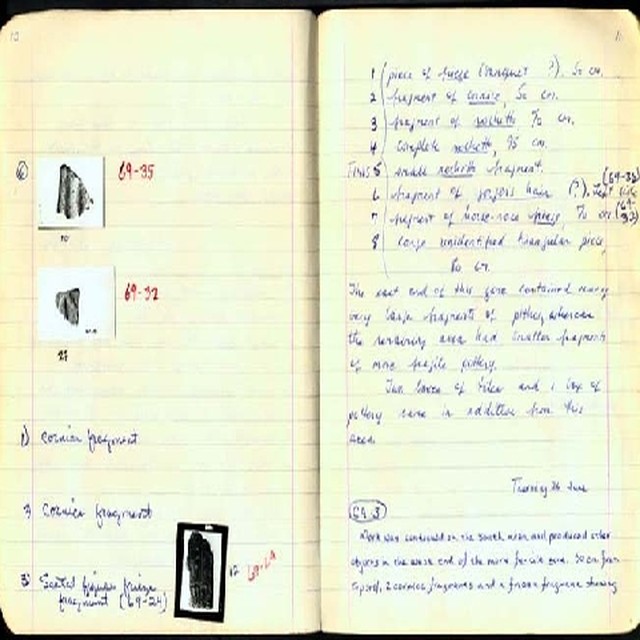 10
6
69-35
10
69-32
27
1) Cornice fragment
3) Cornice fragment
12
69-24
3) Seated figures frieze
fragment (69-24)
11
1 piece of frieze (banquet ?), 52 cm.
2 fragment of cornice, 52 cm.
3 fragment of rochette, 70 cm.
4 Complete rochette, 95 cm.
5 small rochette fragment.
6 fragment of gorgons hair (?), left side (69-35)
7 fragment of horse-race frieze, 70 cm (69-32)
8 large unidentified triangular piece,
80 cm.
The east end of this area contained many
very large fragments of pithoy, whereas
the remaining area had smaller fragments
of more fragile pottery.
Two boxes of tiles and 1 box of
pottery came in addition from this
area.
Thursday 26 June
CA. 3
Work was continued on the south area and produced other
objects in the west end of the more fertile area. 30 cm from
2 cornice fragments and a frieze fragment showing